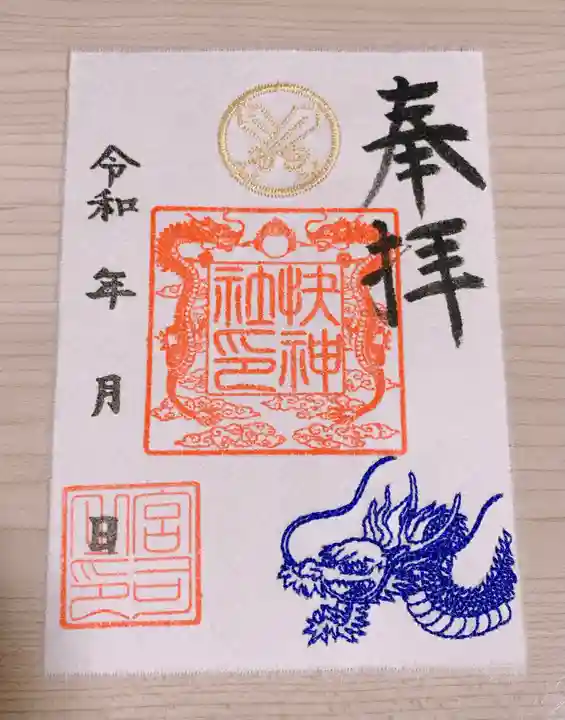 奉拝
快神
社印
令和 年 月 日
宮司
之印